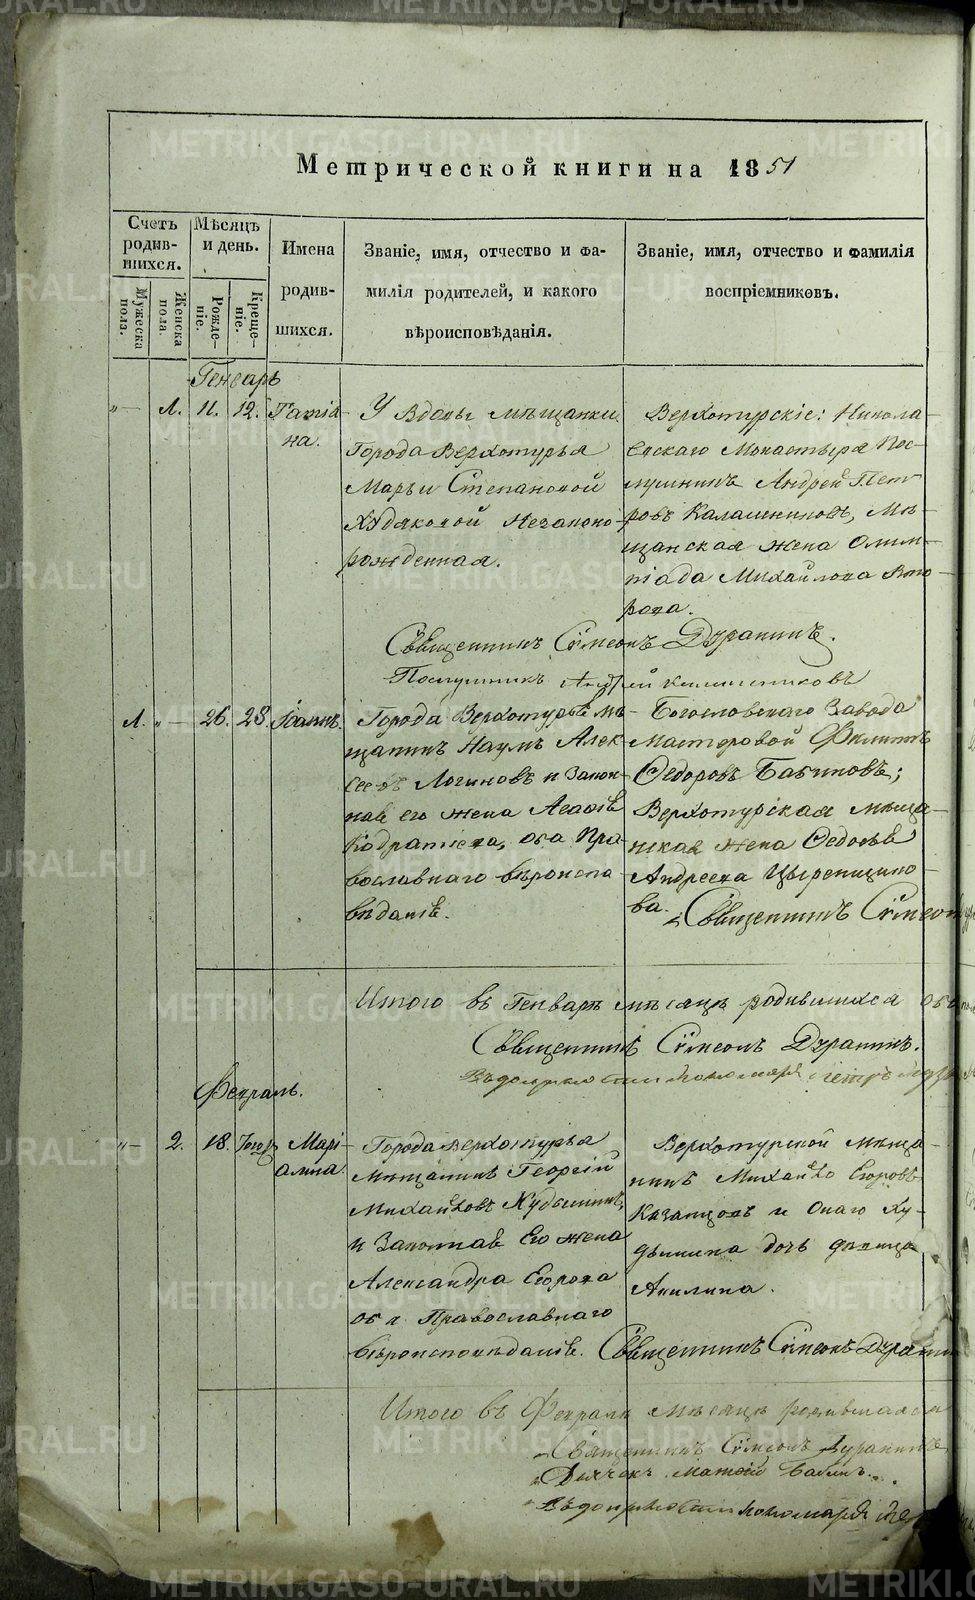 Метрической книги на 1851
Счетъ родив-шихся.
Мѣсяцъ и день.
Имена родив-шихся.
Званіе, имя, отчество и фа-
милія родителей, и какого
вѣроисповѣданія.
Званіе, имя, отчество и фамилія
воспріемниковъ.
Мужеска пола.
Женска пола.
Рожде-ніе.
Креще-ніе.
Генварь
"— 1. 11. 12. Татіа-
на.
У Вдовы мѣщанки
Города Верхотурья
Марьи Степановой
Худяковой Незаконо-
рожденная.
Верхотурскіе: Никола-
евскаго Монастыря Пос-
лушникъ Андрей Пет-
ровъ Калашниковъ, Мѣ-
щанская жена Олим-
піада Михайлова
рова.
Священникъ Сѵмеонъ
Послушникъ Андрей Калашниковъ
1. "— 26. 28. Іоаннъ.
Города Верхотурья мѣ-
щанинъ Наумъ Алек-
сеевъ Логиновъ и Закон-
ная его жена
Кодратьева, оба Пра-
вославнаго вѣроиспа-
вѣданія.
Богословскаго Завода
Мастеровой Филиппъ
Федоровъ Бабиновъ;
Верхотурская мѣща-
нская жена Федосья
Андреева
ва. Священникъ Сѵмеонъ
Итого въ Генварѣ мѣсяцѣ родившихся
Священникъ Сѵмеонъ
Въ должности пономаря Петръ
Февраль.
"— 2. 18. Марі-
амна.
Города Верхотурья
мѣщанинъ Георгій
Михайловъ
и Законная Его жена
Александра Егорова
оба Православнаго
вѣроисповѣданія.
Верхотурской мѣща-
нинъ Михайло Егоровъ
Казанцовъ и Онаго Ху-
дышина дочь дѣвица
Акилина.
Священникъ Сѵмеонъ
Итого въ Февралѣ мѣсяцѣ родившихся
Священникъ Сѵмеонъ
Дьячекъ Матѳей
Въ должности пономаря
METRIKI.GASO-URAL.RU